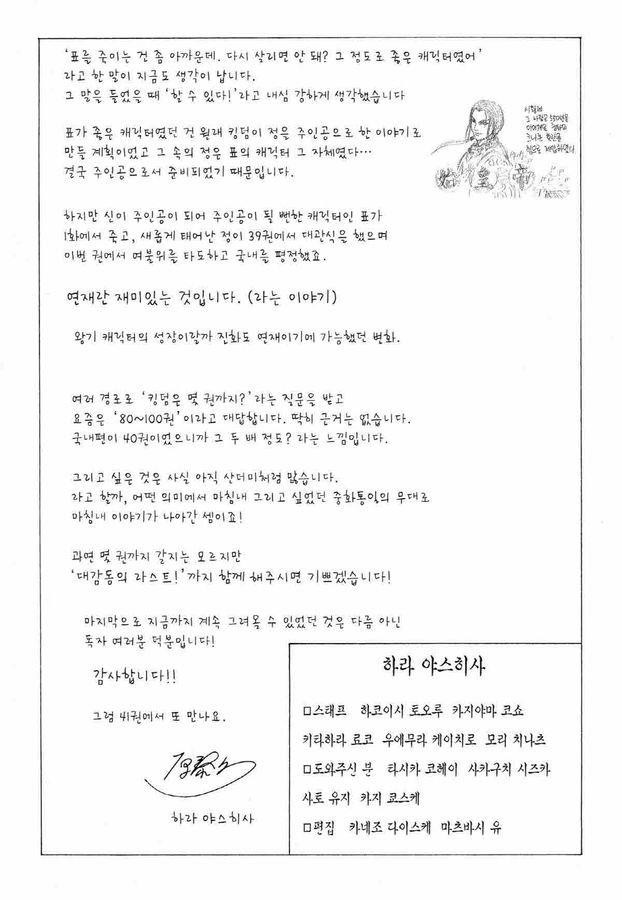 '표를 죽이는 건 좀 아까운데. 다시 살리면 안 돼? 그 정도로 좋은 캐릭터였어'
라고 한 말이 지금도 생각이 납니다.
그 말을 들었을 때 '할 수 있다!'라고 내심 강하게 생각했습니다
표가 좋은 캐릭터였던 건 원래 킹덤이 정을 주인공으로 한 이야기로
만들 계획이었고 그 속의 정은 표의 캐릭터 그 자체였다…
결국 주인공으로서 준비되었기 때문입니다.
始皇帝
하지만 신이 주인공이 되어 주인공이 될 뻔한 캐릭터인 표가
1화에서 죽고, 새롭게 태어난 정이 39권에서 대관식을 했으며
이번 권에서 여불위를 타도하고 국내를 평정했죠.
연재란 재미있는 것입니다. (라는 이야기)
왕기 캐릭터의 성장이랄까 진화도 연재이기에 가능했던 변화.
여러 경로로 '킹덤은 몇 권까지?'라는 질문을 받고
요즘은 '80~100권'이라고 대답합니다. 딱히 근거는 없습니다.
국내편이 40권이었으니까 그 두 배 정도? 라는 느낌입니다.
그리고 싶은 것은 사실 아직 산더미처럼 많습니다.
라고 할까, 어떤 의미에서 마침내 그리고 싶었던 중화통일의 무대로
마침내 이야기가 나아간 셈이죠!
과연 몇 권까지 갈지는 모르지만
'대감동의 라스트!'까지 함께 해주시면 기쁘겠습니다!
마지막으로 지금까지 계속 그려올 수 있었던 것은 다름 아닌
독자 여러분 덕분입니다!
감사합니다!!
그럼 41권에서 또 만나요.
하라 야스히사
하라 야스히사
□스태프 하코이시 토오루 카지야마 코쇼
키타하라 료코 우에무라 케이치로 모리 치나츠
□도와주신 분 타시카 코헤이 사카구치 시즈카
사토 유지 카지 코스케
□편집 카네조 다이스케 마츠바시 유